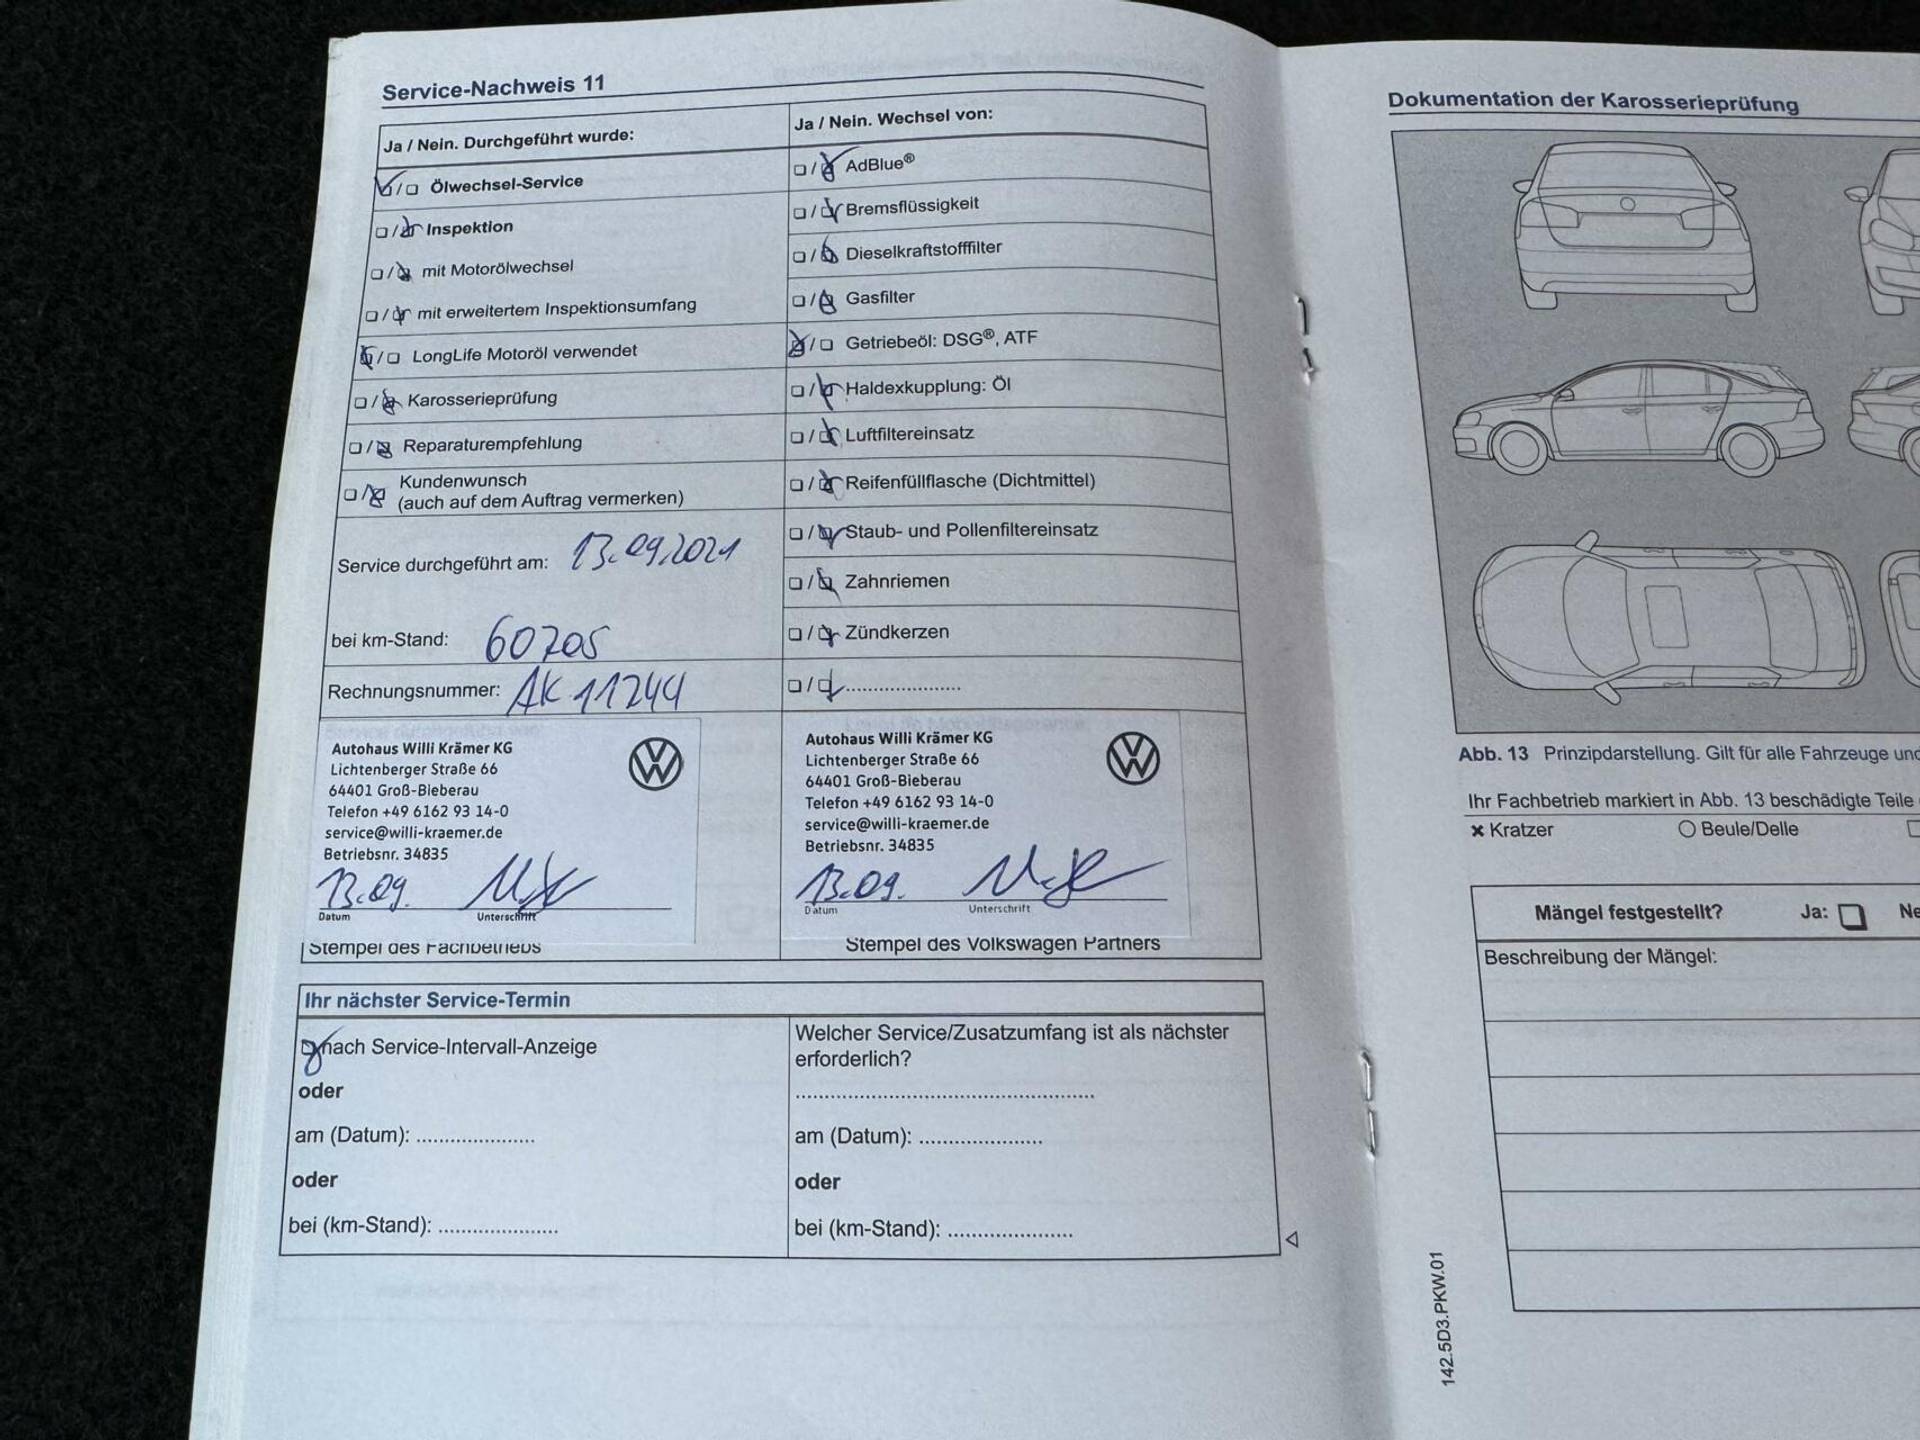 Service-Nachweis 11
Ja / Nein. Durchgeführt wurde:
Ölwechsel-Service
Inspektion
mit Motorölwechsel
mit erweitertem Inspektionsumfang
LongLife Motoröl verwendet
Karosserieprüfung
Reparaturempfehlung
Kundenwunsch
(auch auf dem Auftrag vermerken)
Service durchgeführt am: 13.09.2021
bei km-Stand: 60705
Rechnungsnummer: AK 11244
Ja / Nein. Wechsel von:
AdBlue®
Bremsflüssigkeit
Dieselkraftstofffilter
Gasfilter
Getriebeöl: DSG®, ATF
Haldexkupplung: Öl
Luftfiltereinsatz
Reifenfüllflasche (Dichtmittel)
Staub- und Pollenfiltereinsatz
Zahnriemen
Zündkerzen
Autohaus Willi Krämer KG
Lichtenberger Straße 66
64401 Groß-Bieberau
Telefon +49 6162 93 14-0
service@willi-kraemer.de
Betriebsnr. 34835
13.09.
Datum Unterschrift
Stempel des Fachbetriebs
Autohaus Willi Krämer KG
Lichtenberger Straße 66
64401 Groß-Bieberau
Telefon +49 6162 93 14-0
service@willi-kraemer.de
Betriebsnr. 34835
13.09.
Datum Unterschrift
Stempel des Volkswagen Partners
Ihr nächster Service-Termin
nach Service-Intervall-Anzeige
oder
am (Datum): .....................
oder
bei (km-Stand): .....................
Welcher Service/Zusatzumfang ist als nächster
erforderlich?
am (Datum): .....................
oder
bei (km-Stand): .....................
Dokumentation der Karosserieprüfung
Abb. 13 Prinzipdarstellung. Gilt für alle Fahrzeuge und
Ihr Fachbetrieb markiert in Abb. 13 beschädigte Teile
× Kratzer
Beule/Delle
Mängel festgestellt? Ja: Ne
Beschreibung der Mängel:
142.5D3.PKW.01